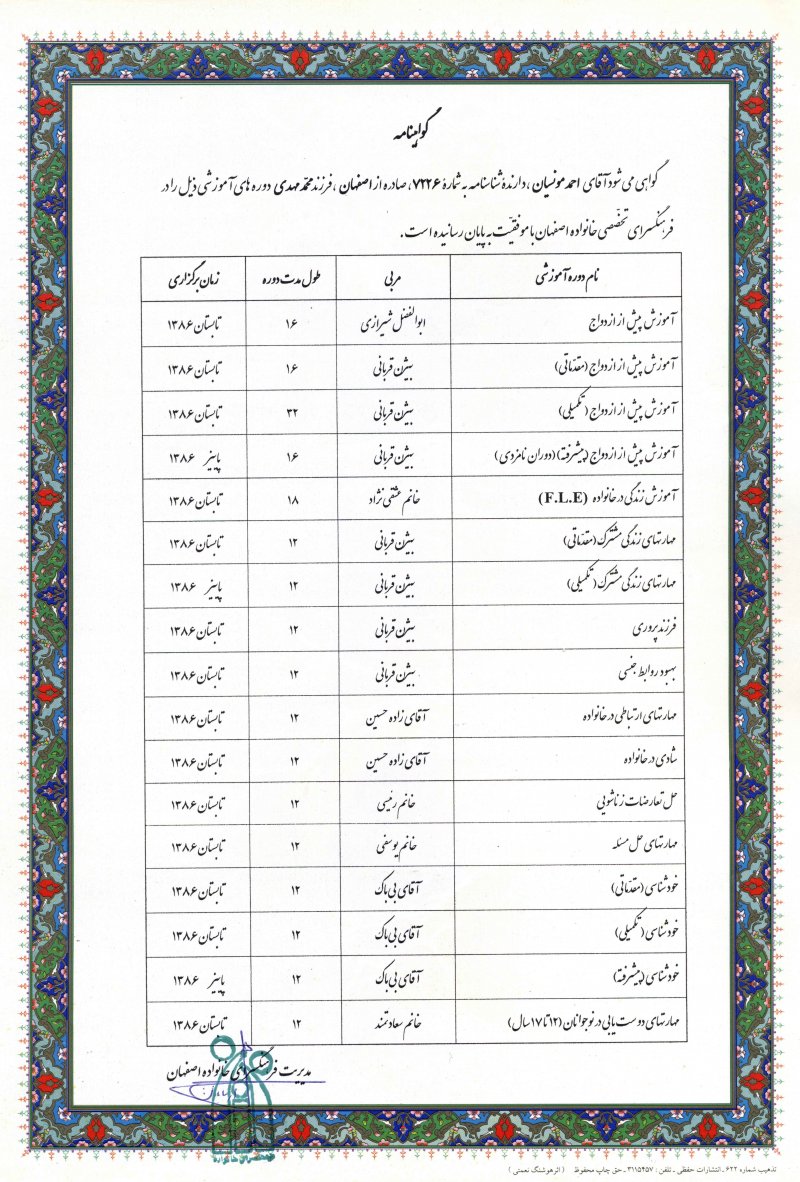 گواهینامه
گواهی می شود آقای احمد مونسیان ، دارندهٔ شناسنامه به شمارهٔ ۷۲۲۶ ، صادره از اصفهان ، فرزند محمد مهدی دوره های آموزشی ذیل را در
فرهنگسرای تخصّصی خانواده اصفهان با موفقیّت به پایان رسانیده است .
نام دوره آموزشی مربی طول مدت دوره زمان برگزاری
آموزش پیش از ازدواج ابوالفضل شیرازی ۱۶ تابستان ۱۳۸۶
آموزش پیش از ازدواج (مقدّماتی) بیژن قربانی ۱۶ تابستان ۱۳۸۶
آموزش پیش از ازدواج (تکمیلی) بیژن قربانی ۳۲ تابستان ۱۳۸۶
آموزش پیش از ازدواج (پیشرفته) (دوران نامزدی) بیژن قربانی ۱۶ پاییز ۱۳۸۶
آموزش زندگی در خانواده (F.L.E) خانم عشقی نژاد ۱۸ تابستان ۱۳۸۶
مهارتهای زندگی مشترک (مقدّماتی) بیژن قربانی ۱۲ تابستان ۱۳۸۶
مهارتهای زندگی مشترک (تکمیلی) بیژن قربانی ۱۲ پاییز ۱۳۸۶
فرزند پروری بیژن قربانی ۱۲ تابستان ۱۳۸۶
بهبود روابط جنسی بیژن قربانی ۱۲ تابستان ۱۳۸۶
مهارتهای ارتباطی در خانواده آقای زاده حسین ۱۲ تابستان ۱۳۸۶
شادی در خانواده آقای زاده حسین ۱۲ تابستان ۱۳۸۶
حل تعارضات زناشویی خانم رئیسی ۱۲ تابستان ۱۳۸۶
مهارتهای حل مسئله خانم یوسفی ۱۲ تابستان ۱۳۸۶
خودشناسی (مقدّماتی) آقای بی باک ۱۲ تابستان ۱۳۸۶
خودشناسی (تکمیلی) آقای بی باک ۱۲ تابستان ۱۳۸۶
خودشناسی (پیشرفته) آقای بی باک ۱۲ پاییز ۱۳۸۶
مهارتهای دوست یابی در نوجوانان (۱۲ تا ۱۷ سال) خانم سعادتمند ۱۲ تابستان ۱۳۸۶
مدیریت فرهنگسرای خانواده اصفهان
تذهیب شماره ۶۲۲ ـ انتشارات حفظی ـ تلفن : ۳۱۱۵۴۵۷ ـ حق چاپ محفوظ ( اثر هوشنگ نعمتی )